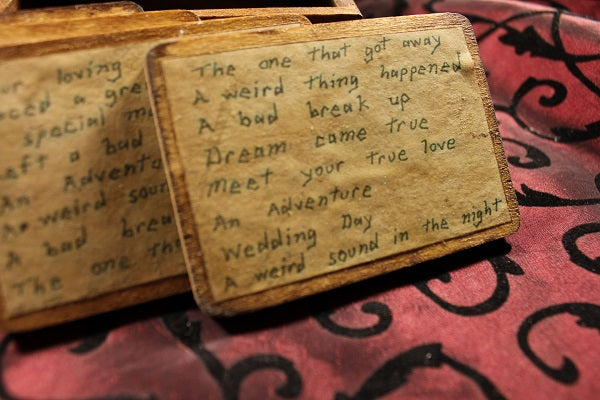 The one that got away
A weird thing happened
A bad break up
Dream came true
Meet your true love
An Adventure
Wedding Day
A weird sound in the night
loving
a
special
a bad
An
A weird
A bad
The one